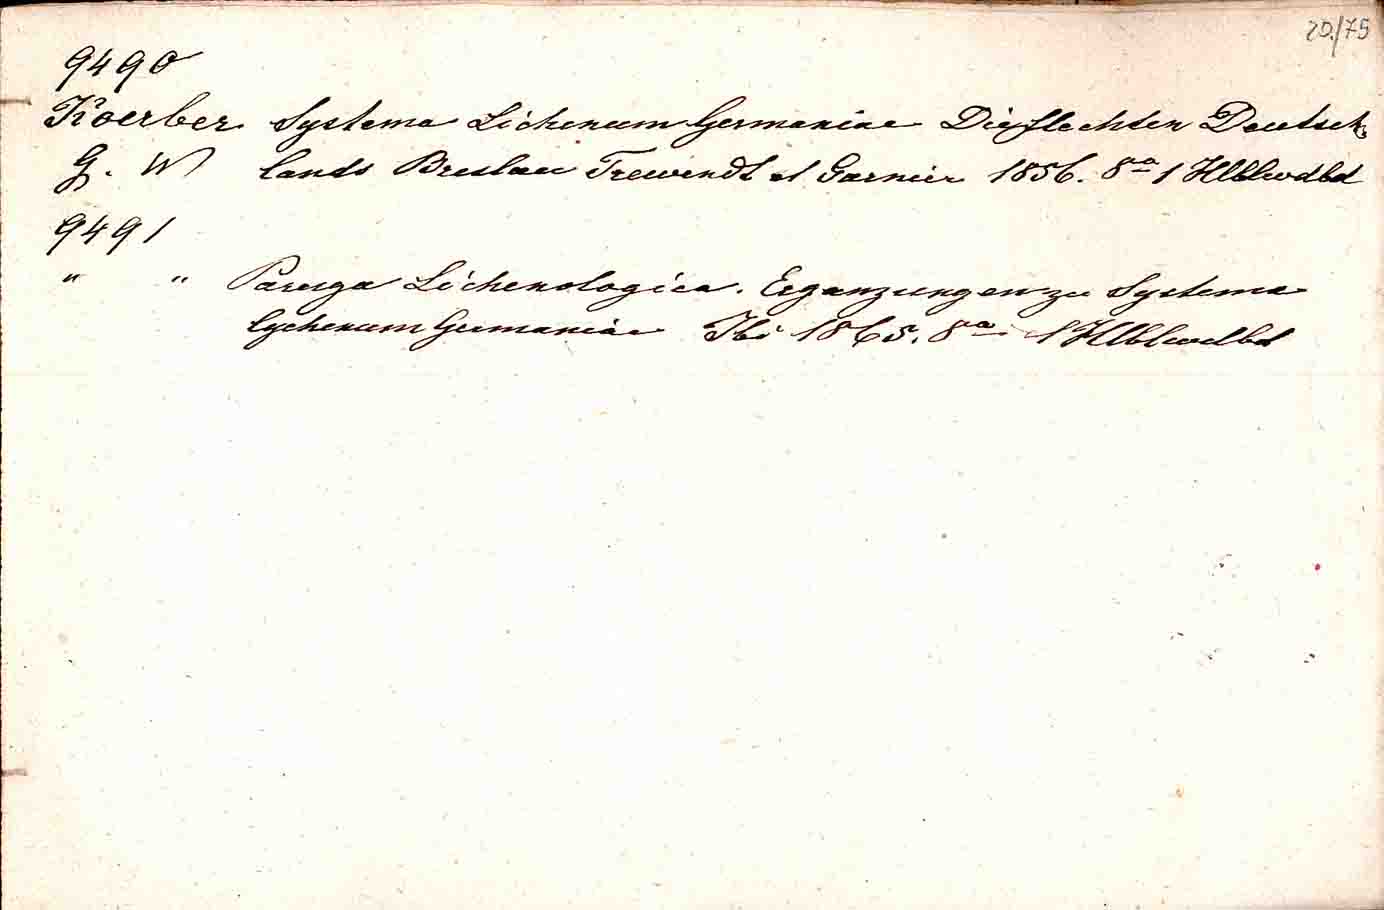 20./75
9490
Koerber Systema Lichenum Germaniae Die flechten Deutsch,
G. W lands Breslau Trewendt et Garnier 1856. 8º 1 Hlblwdbd
9491
" " Parerga Lichenologica. Erganzungen zu Systema
lychenum Germaniae Ibi 1865. 8º 1 Hlblwdbd